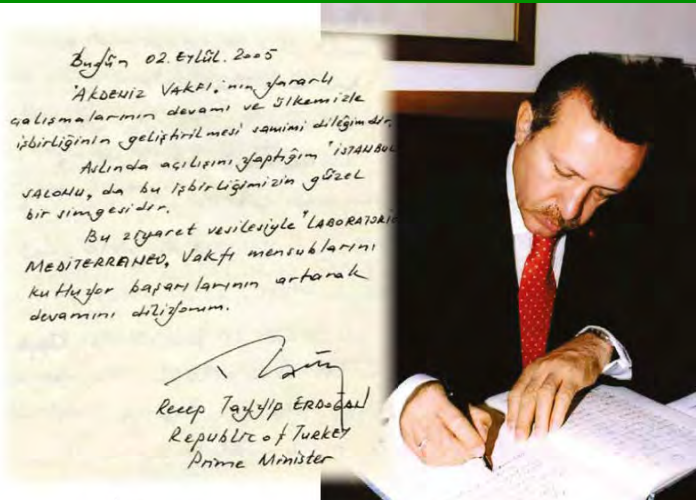 Bugün 02.Eylül.2005
"AKDENİZ VAKFI"nın yararlı
çalışmalarının devamı ve ülkemizle
işbirliğinin geliştirilmesi samimi dileğimdir.
Aslında açılışını yaptığım "İSTANBUL
SALONU" da bu işbirliğimizin güzel
bir simgesidir.
Bu ziyaret vesilesiyle "LABORATORIO
MEDITERRANEO" Vakfı mensublarını
kutluyor başarılarının artarak
devamını diliyorum.
Recep Tayyip ERDOĞAN
Republic of TURKEY
Prime Minister